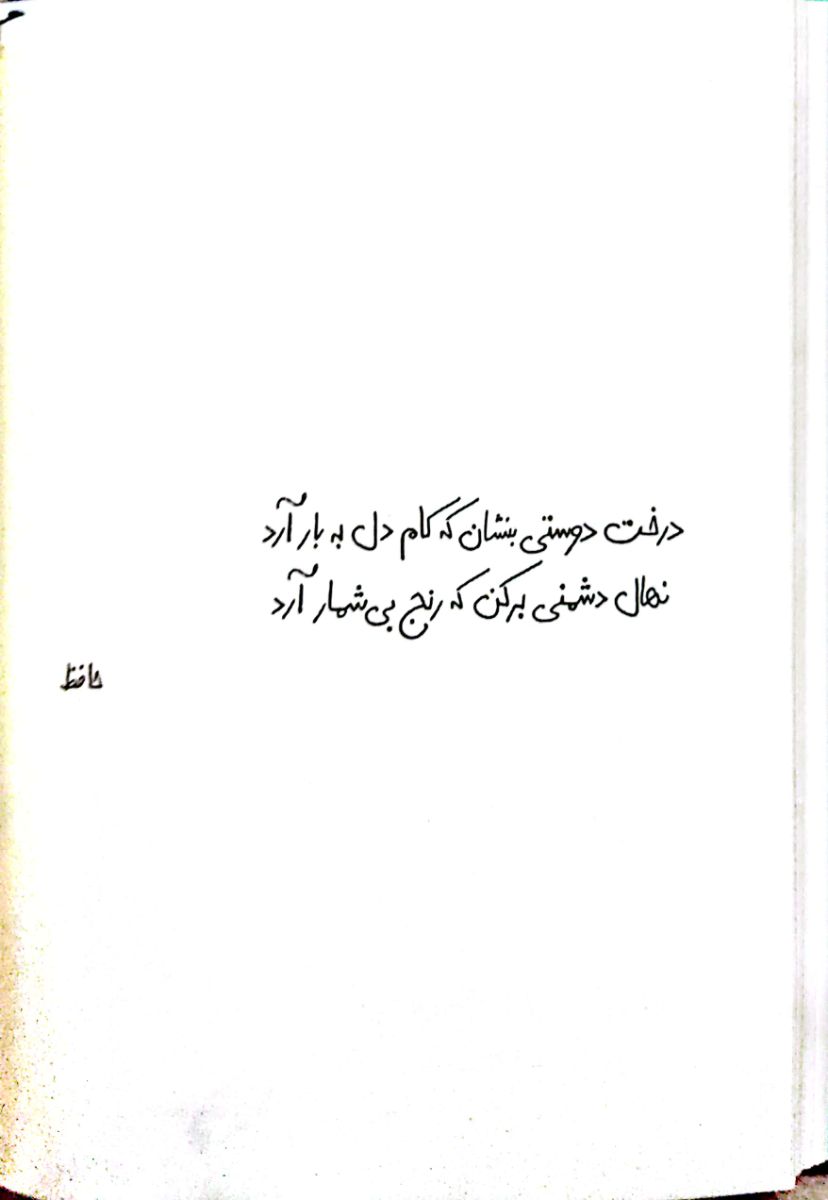 درخت دوستی بنشان که کام دل به بار آرد
نهال دشمنی برکن که رنج بی‌شمار آرد
حافظ